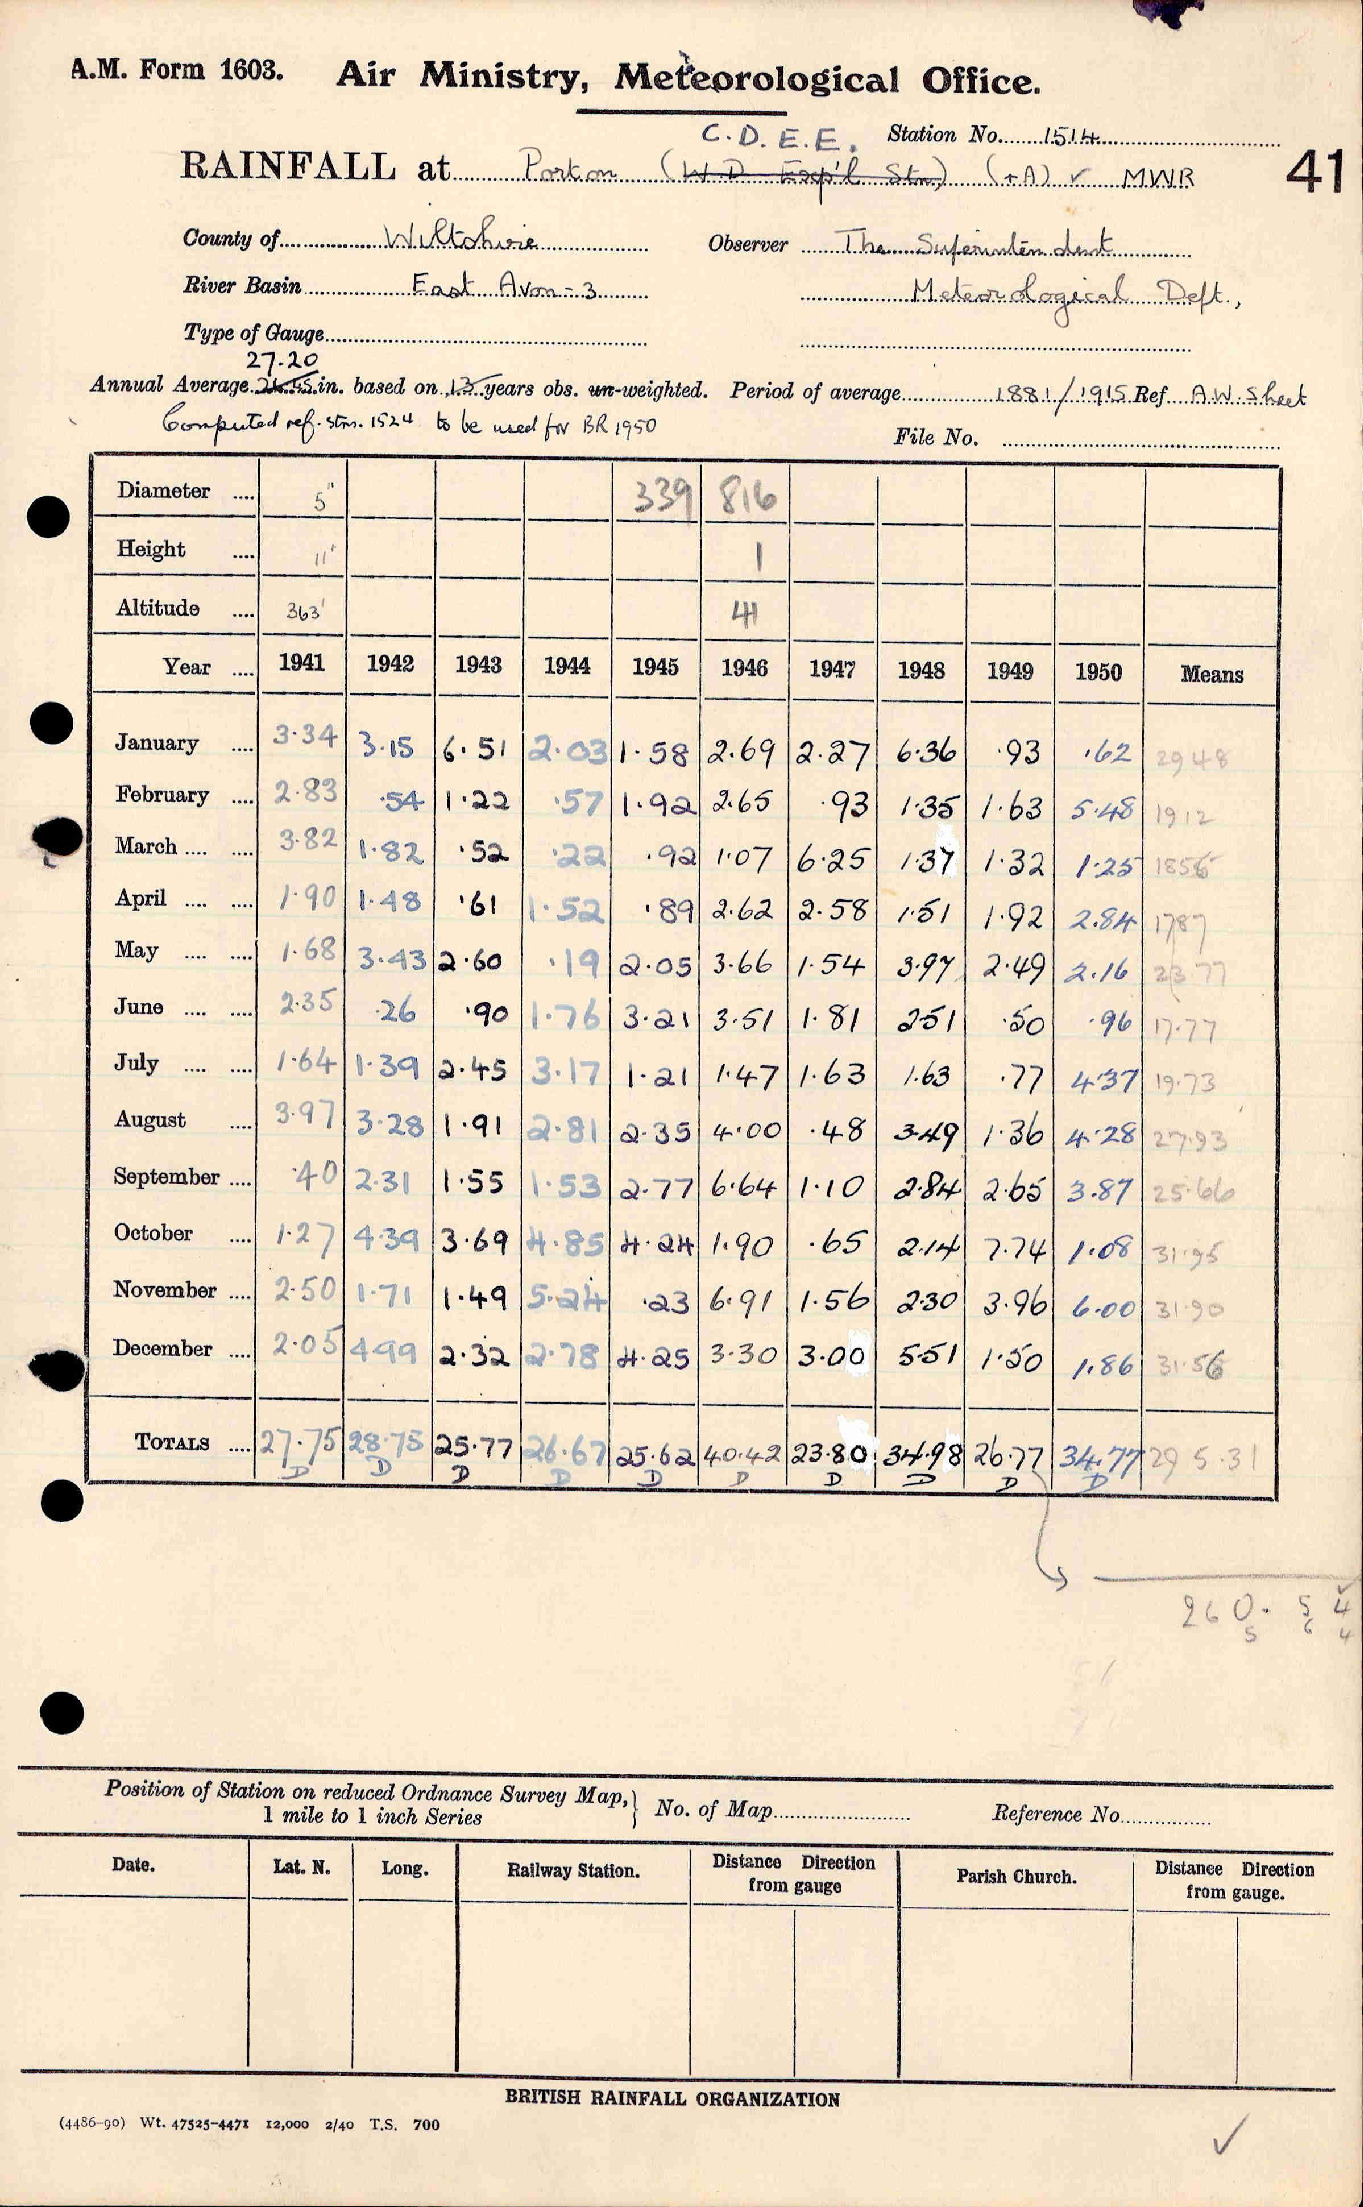 A.M. Form 1603. Air Ministry, Meteorological Office.
C.D.E.E. Station No. 1514
RAINFALL at Porton (W.D. Exp'l Stn) (+A) ✓ MWR 41
County of Wiltshire Observer The Superintendent
River Basin East Avon-3 Meteorological Dept.,
Type of Gauge
27.20
Annual Average in. based on 13 years obs. un-weighted. Period of average 1881/1915 Ref. A.W. Sheet
Computed ref. stn. 1524 to be used for BR 1950
File No.
Diameter .... 5" 339 816
Height .... 11" 1
Altitude .... 363' 41
Year .... 1941 1942 1943 1944 1945 1946 1947 1948 1949 1950 Means
January .... 3.34 3.15 6.51 2.03 1.58 2.69 2.27 6.36 .93 .62 29 48
February .... 2.83 .54 1.22 .57 1.92 2.65 .93 1.35 1.63 5.48 19 12
March .... .... 3.82 1.82 .52 .22 .92 1.07 6.25 1.37 1.32 1.25 1856
April .... .... 1.90 1.48 .61 1.52 .89 2.62 2.58 1.51 1.92 2.84 1787
May .... .... 1.68 3.43 2.60 .19 2.05 3.66 1.54 3.97 2.49 2.16 23 77
June .... .... 2.35 .26 .90 1.76 3.21 3.51 1.81 2.51 .50 .96 17.77
July .... .... 1.64 1.39 2.45 3.17 1.21 1.47 1.63 1.63 .77 4.37 19.73
August .... 3.97 3.28 1.91 2.81 2.35 4.00 .48 3.49 1.36 4.28 27.93
September .... .40 2.31 1.55 1.53 2.77 6.64 1.10 2.84 2.65 3.87 25.66
October .... 1.27 4.39 3.69 4.85 4.24 1.90 .65 2.14 7.74 1.08 31.95
November .... 2.50 1.71 1.49 5.24 .23 6.91 1.56 2.30 3.96 6.00 31.90
December .... 2.05 4.99 2.32 2.78 4.25 3.30 3.00 5.51 1.50 1.86 31.56
TOTALS .... 27.75 28.75 25.77 26.67 25.62 40.42 23.80 34.98 26.77 34.77 29 5.31
D D D D D D D D D D
260. 5 4
5 6 4
Position of Station on reduced Ordnance Survey Map, } No. of Map Reference No.
1 mile to 1 inch Series
Date. Lat. N. Long. Railway Station. Distance Direction from gauge Parish Church. Distance Direction from gauge.
BRITISH RAINFALL ORGANIZATION
(4486-90) Wt. 47525-4471 12,000 2/40 T.S. 700
✓